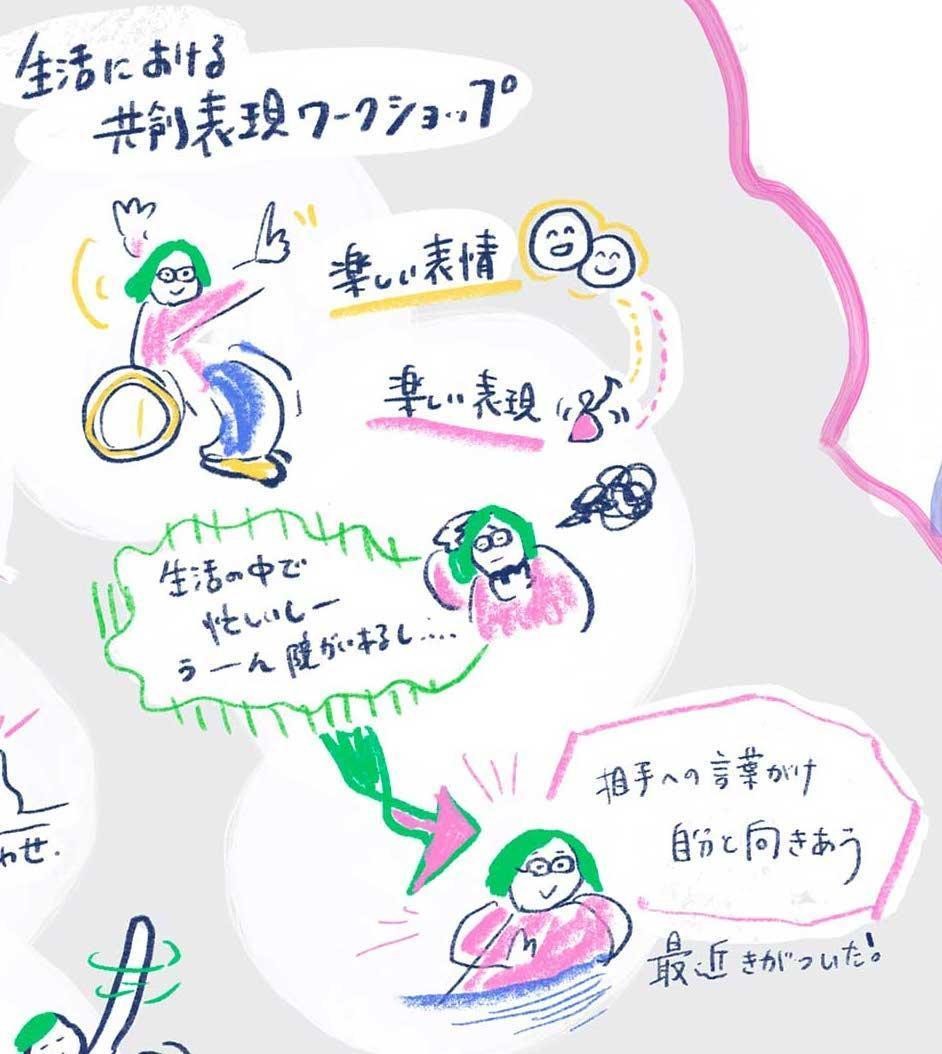 生活における
共創表現ワークショップ
楽しい表情
楽しい表現
生活の中で
忙しいしー
うーん 障がいあるし....
相手への言葉がけ
自分と向きあう
最近きがついた!
わせ.